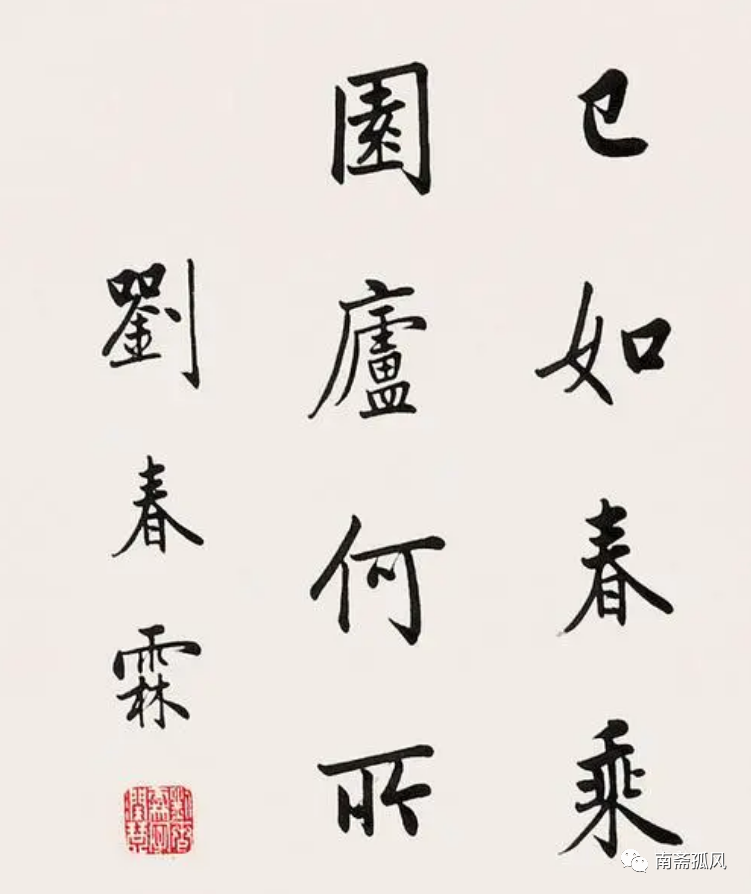 已如春乘
園廬何所
劉春霖
南斋孤风